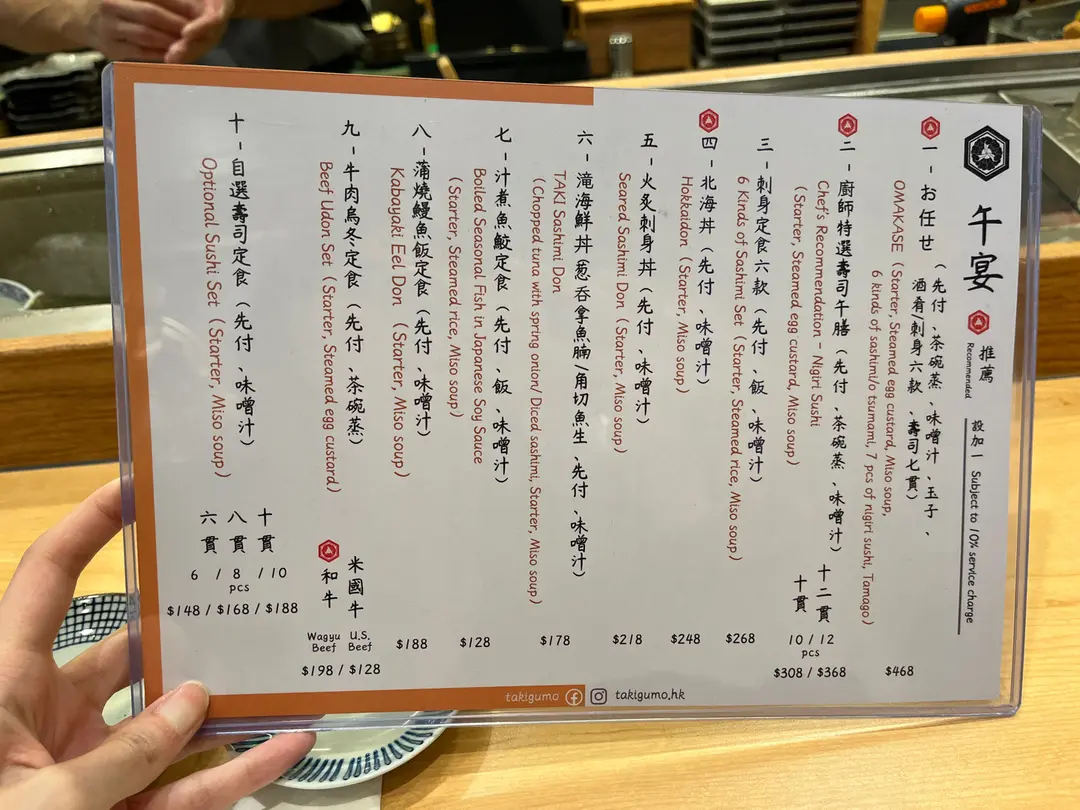 午宴
推薦
Recommended
設加一 Subject to 10% service charge
一 - お任せ (先付、茶碗蒸、味噌汁、玉子、
酒肴/刺身六款、壽司七貫)
OMAKASE (Starter, Steamed egg custard, Miso soup,
6 kinds of sashimi/o tsumami, 7 pcs of nigiri sushi, Tamago)
$468
二 - 廚師特選壽司午膳 (先付、茶碗蒸、味噌汁)
Chef's Recommendation - Nigiri Sushi
(Starter, Steamed egg custard, Miso soup)
十二貫
十貫
10 / 12
pcs
$308 / $368
三 - 刺身定食六款 (先付、飯、味噌汁)
6 Kinds of Sashimi Set (Starter, Steamed rice, Miso soup)
$268
四 - 北海丼 (先付、味噌汁)
Hokkaidon (Starter, Miso soup)
$248
五 - 火炙刺身丼 (先付、味噌汁)
Seared Sashimi Don (Starter, Miso soup)
$218
六 - 滝海鮮丼 (葱吞拿魚腩/角切魚生、先付、味噌汁)
TAKI Sashimi Don
(Chopped tuna with spring onion/ Diced sashimi, Starter, Miso soup)
$178
七 - 汁煮魚鮫定食 (先付、飯、味噌汁)
Boiled Seasonal Fish in Japanese Soy Sauce
(Starter, Steamed rice, Miso soup)
$128
八 - 蒲燒鰻魚飯定食 (先付、味噌汁)
Kabayaki Eel Don (Starter, Miso soup)
$188
九 - 牛肉烏冬定食 (先付、茶碗蒸)
Beef Udon Set (Starter, Steamed egg custard)
米國牛
和牛
Wagyu Beef U.S. Beef
$198 / $128
十 - 自選壽司定食 (先付、味噌汁)
Optional Sushi Set (Starter, Miso soup)
十貫
八貫
六貫
6 / 8 / 10
pcs
$148 / $168 / $188
takigumo takigumo.hk